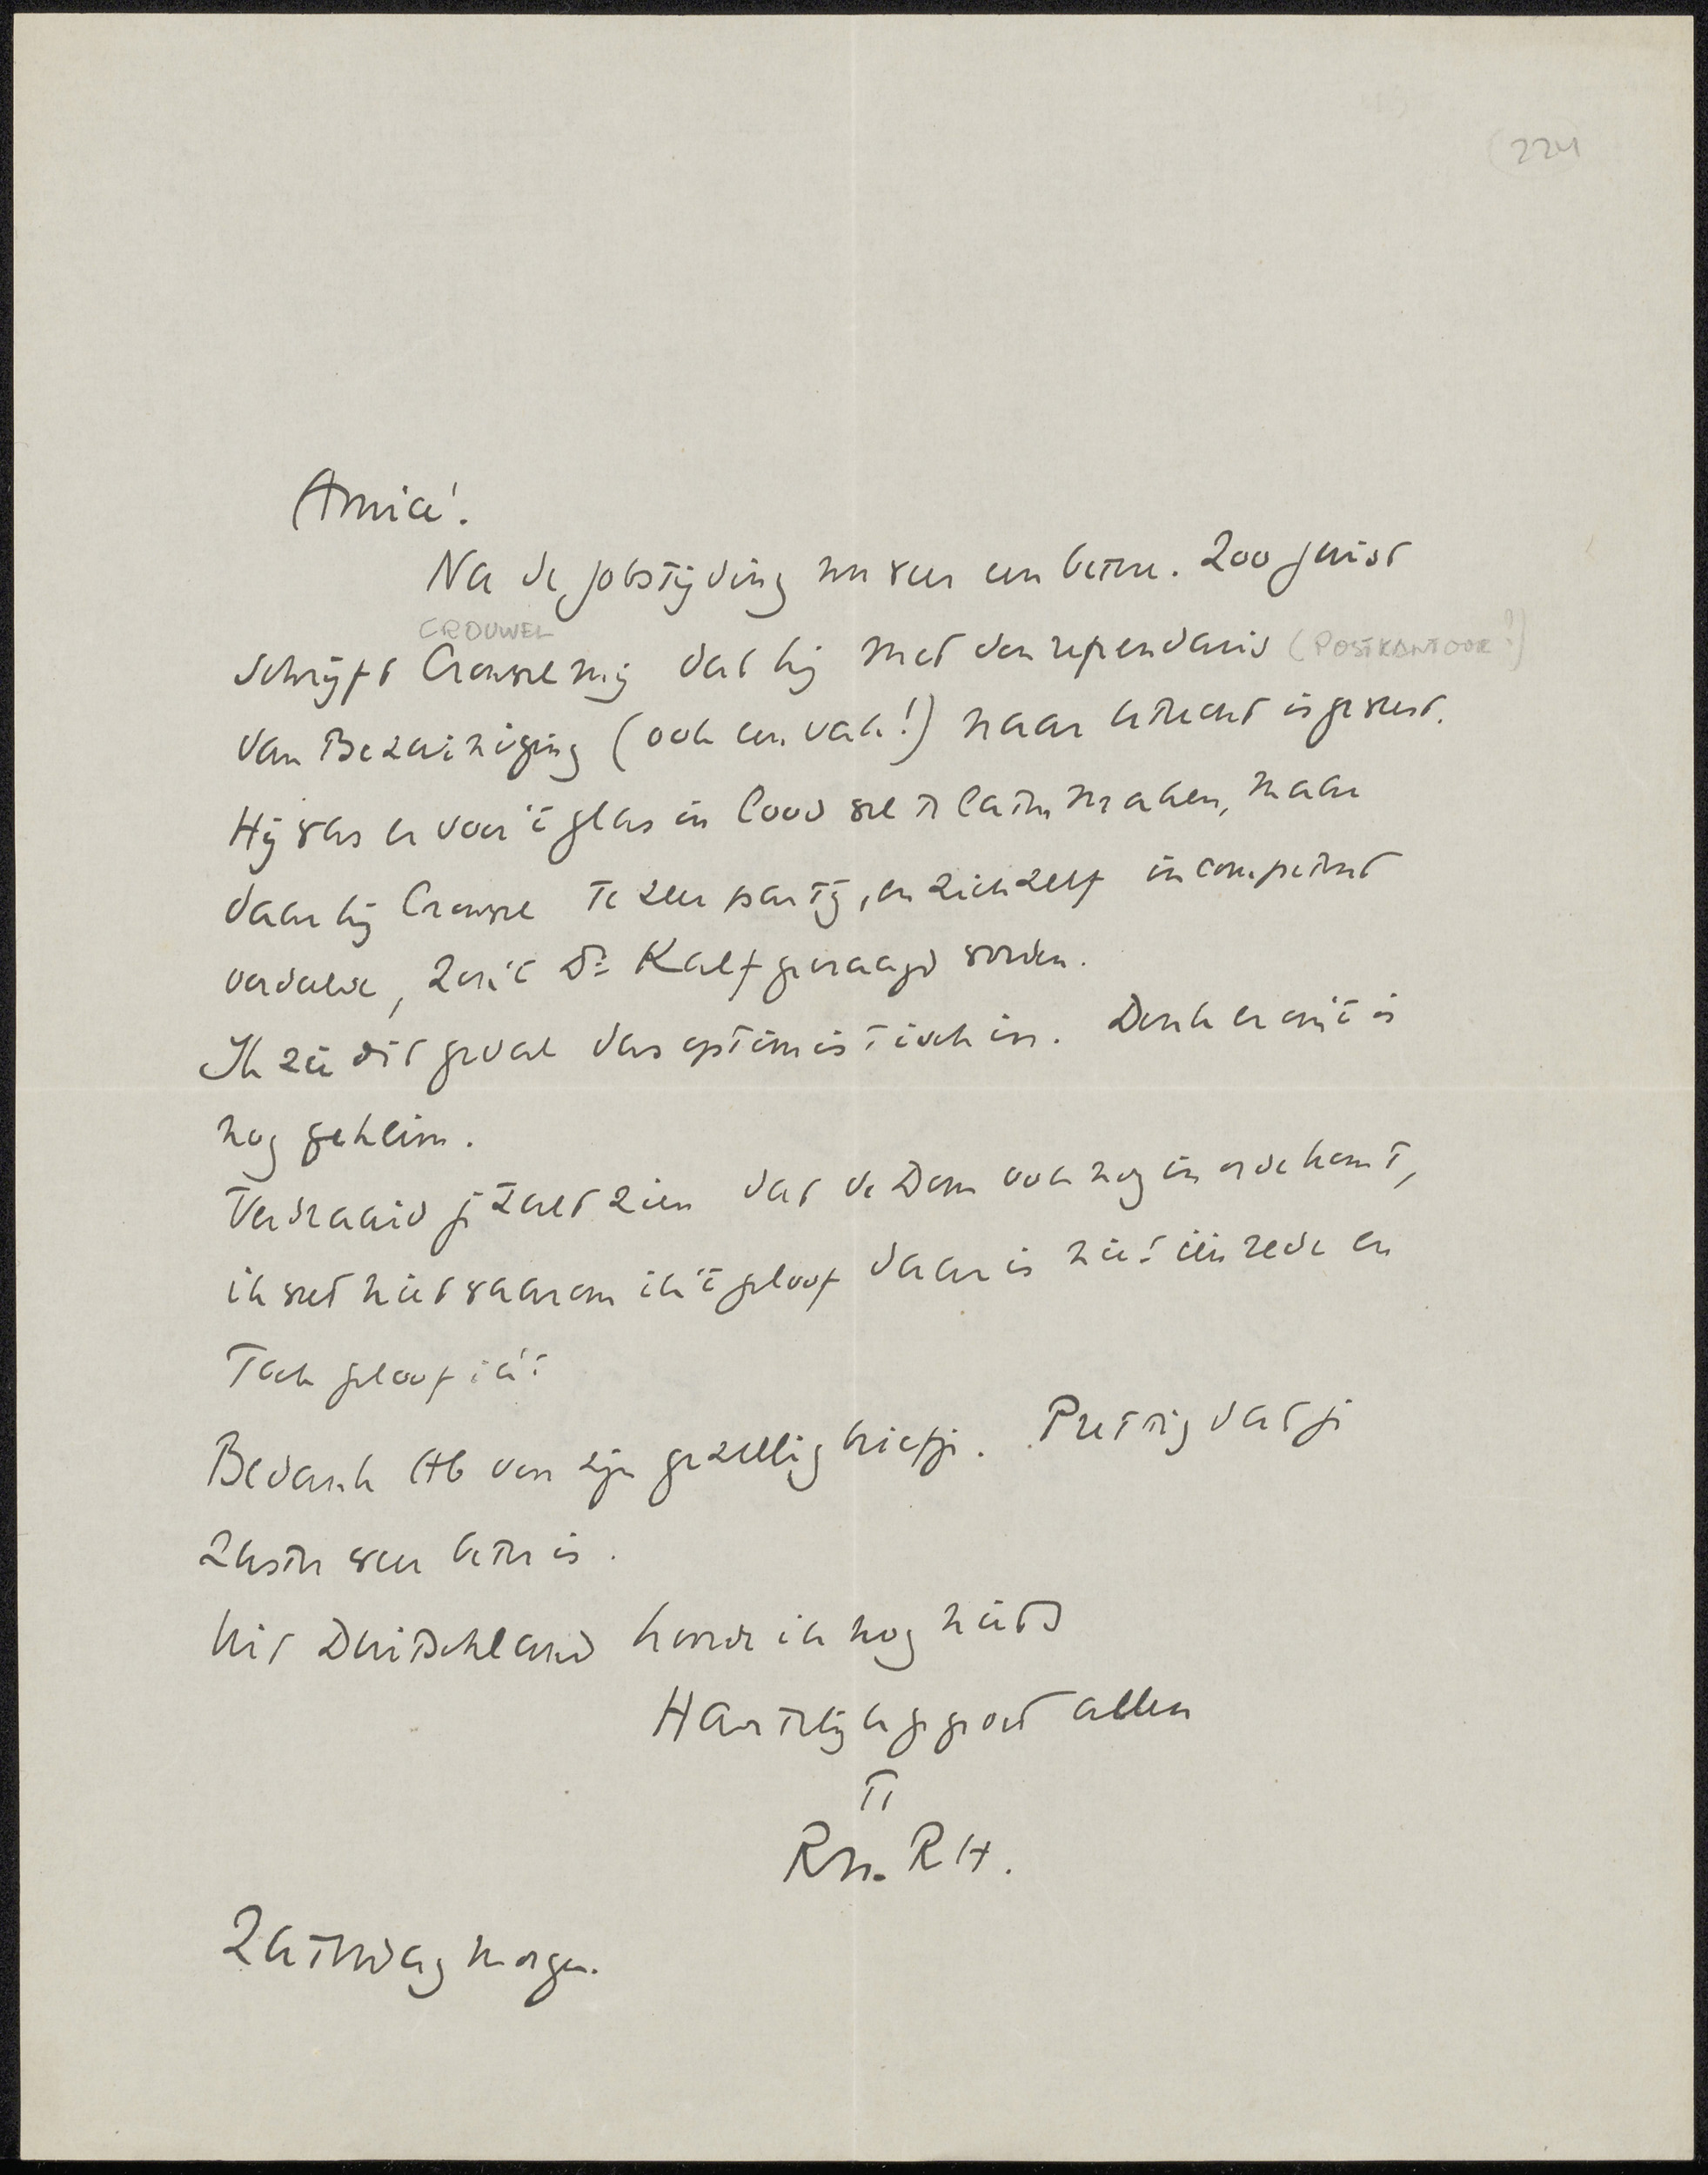 224
Amice!
Na de jobstijding nu weer een betere. Zoo juist
CROUWEL
schrijft Crouwel mij dat hij met den referendaris (POSTKANTOOR?)
van Bezuiniging (ook een vak!) naar Utrecht is geweest.
Hij was er voor 't glas in lood wel te laten maken, maar
daar hij Crouwel te zeer partij, en zichzelf incompetent
verdacht, zou 't Dr Kalf gevraagd worden.
Ik zie dit geval dus optimistisch in. Denk er om 't is
nog geheim.
Verdraaid je zult zien dat de Dom ook nog in orde komt,
ik weet niet waarom ik 't geloof daar is niet één rede en
Toch geloof ik 't
Bedank Ab van zijn gezellig briefje. Prettig dat je
zuster weer beter is.
Uit Duitschland hoorde ik nog niets
Hartelijk gegroet allen
tt
Rn. RH.
Zaterdag morgen.